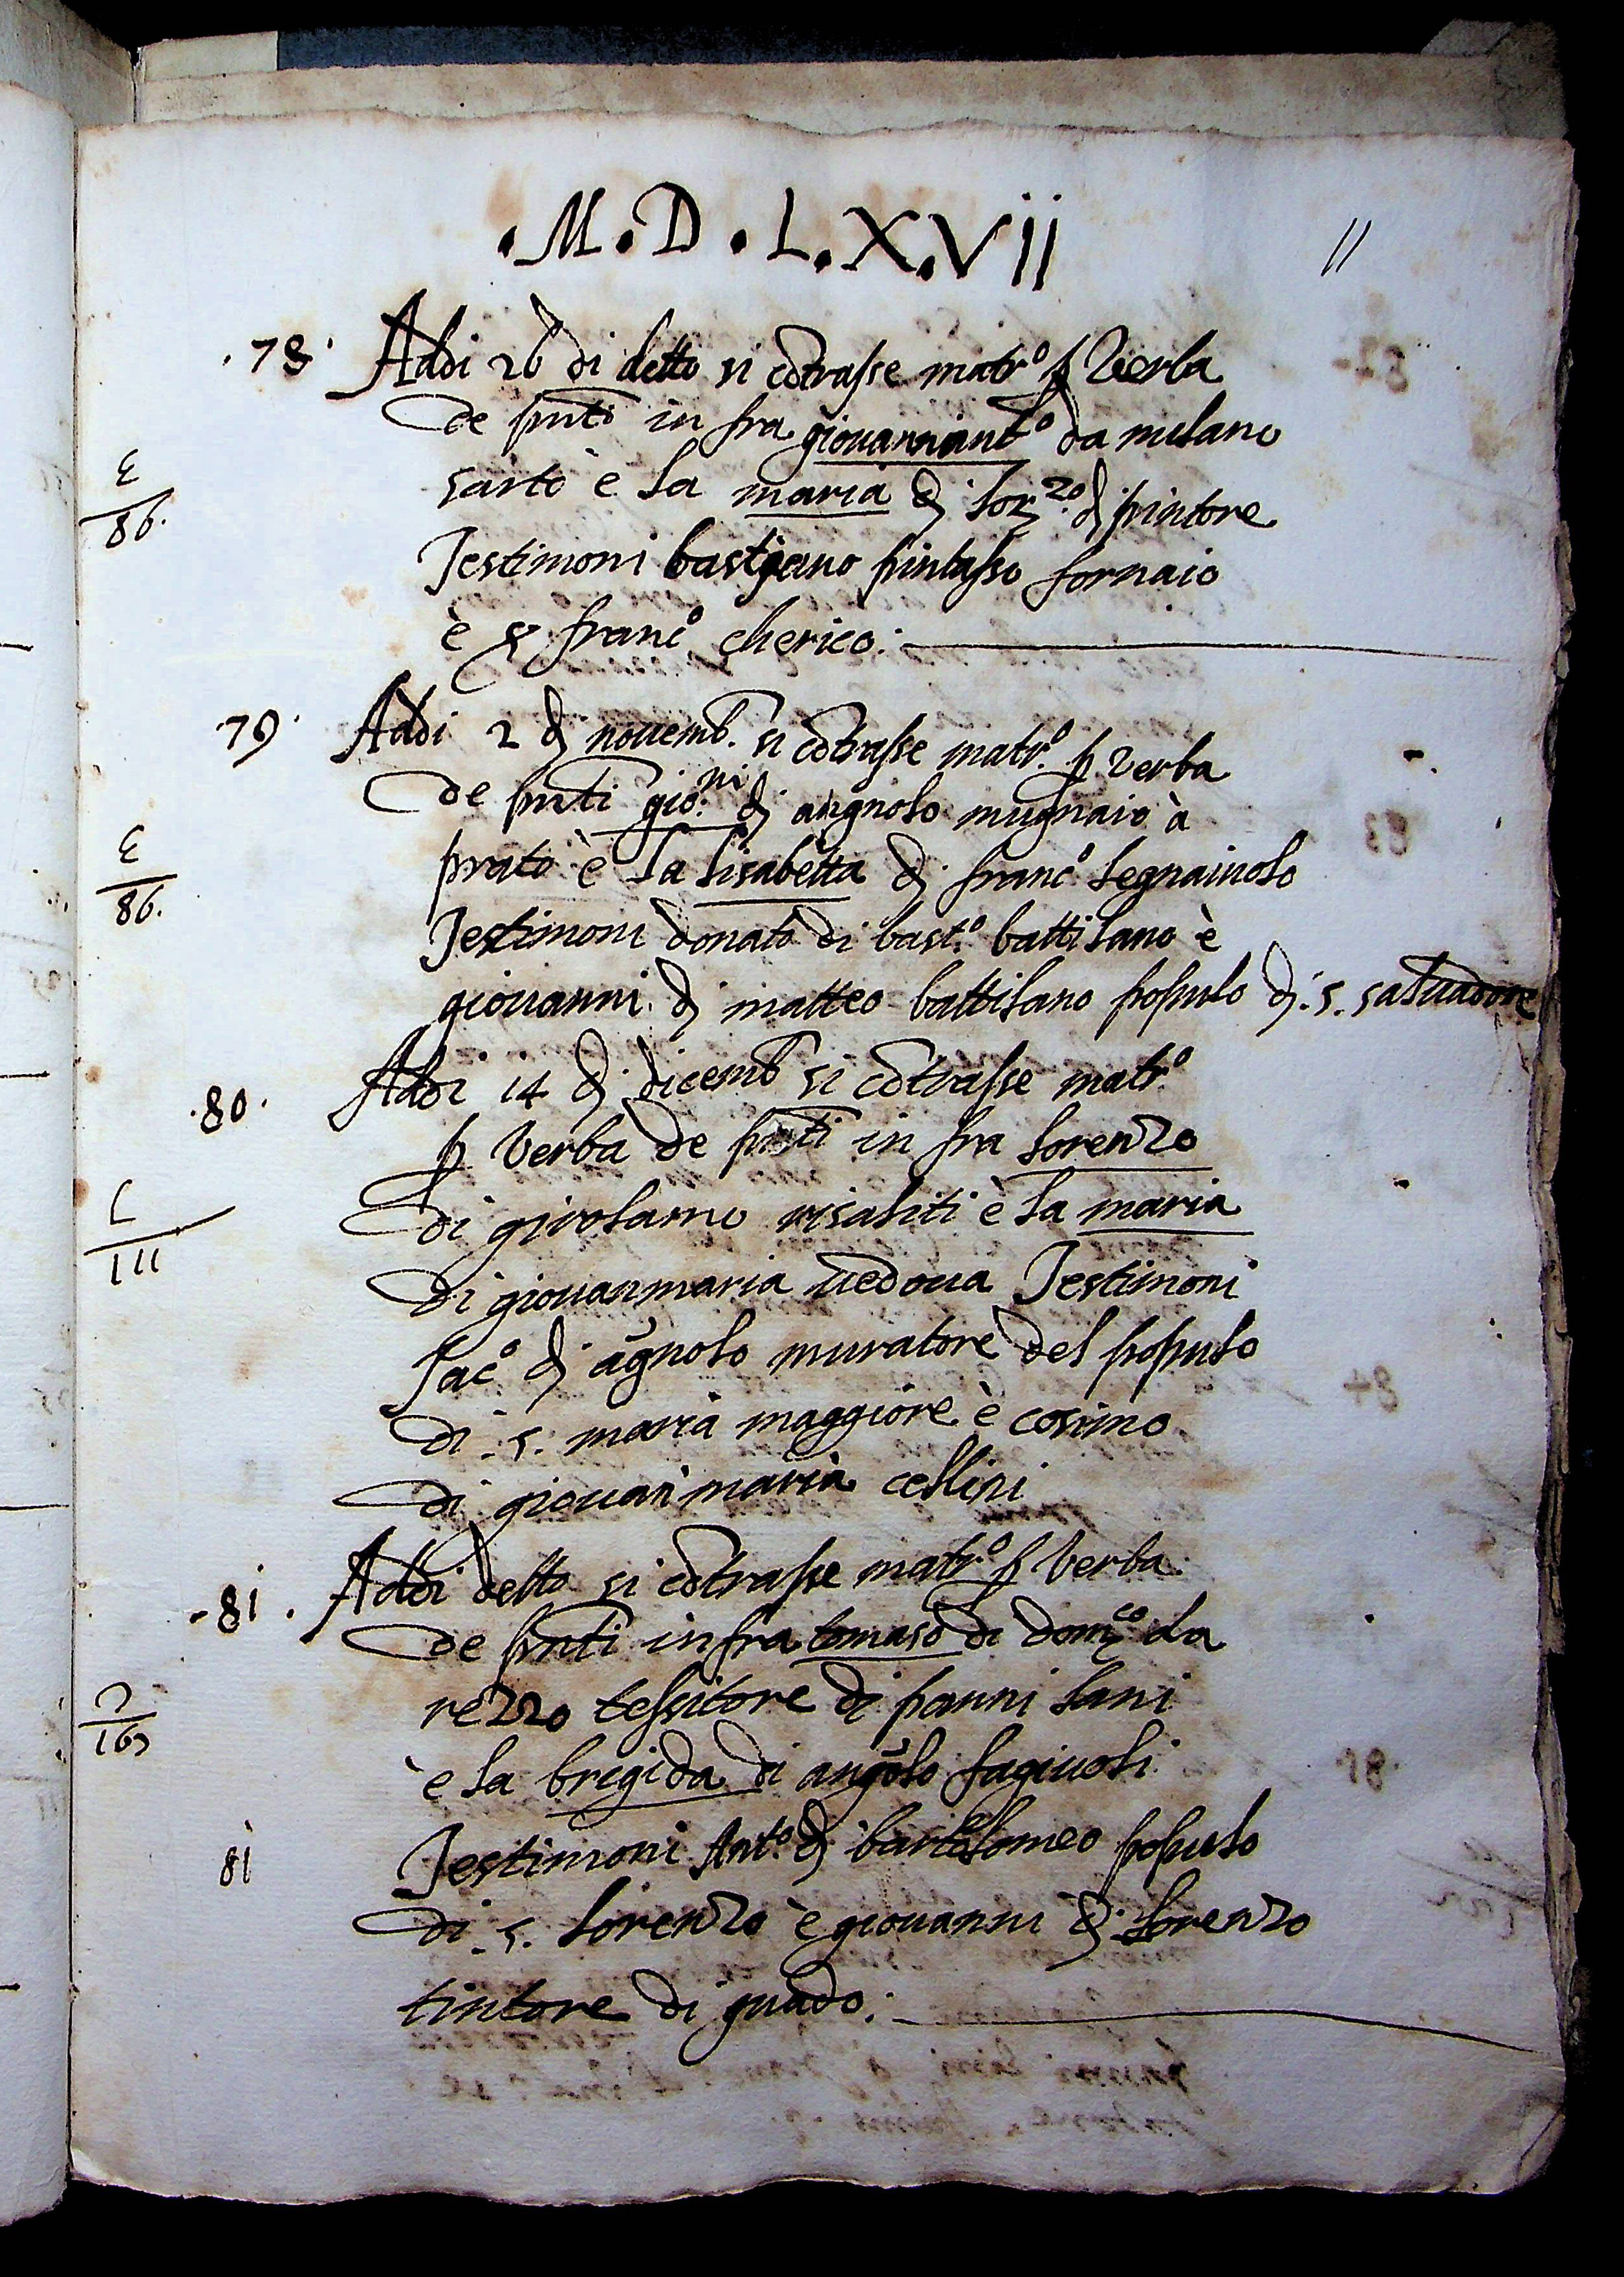 .M.D.L.X.Vii
11
.78. Addi 26 di detto si cōtrasse matr.º p Verba
de pn̄ti in fra giouannant.º da milano
sarto è la maria di lor.zo di pintore
ε
86.
Testimoni bastiano fornaio
è franc.º cherico:
.79. Addi 2 di nouemb. si cōtrasse matr.º p verba
de pn̄ti gio.ni di angnolo mugnaio à
prato è la lisabetta di franc.º legnaiuolo
ε
86.
Testimoni donato di bast.º battilano è
giouanni di matteo battilano populo di .s. saluadore
.80. Addi 14 di dicemb si cōtrasse matr.º
p Verba de pn̄ti in fra lorenzo
di girolamo risaliti è la maria
L
111
di giouanmaria uedoua Testimoni
Jac.º di agnolo muratore del populo
di .s. maria maggiore è cosimo
di giouan maria cellini
.81. Addi detto si cōtrasse matr.º p Verba
de pn̄ti in fra tomaso di dom.co da
rezzo tessitore di panni lani
è la brigida di angolo fagiuoli
81
Testimoni Ant.º di bartolomeo populo
di .s. lorenzo è giouanni di lorenzo
tintore di guado: